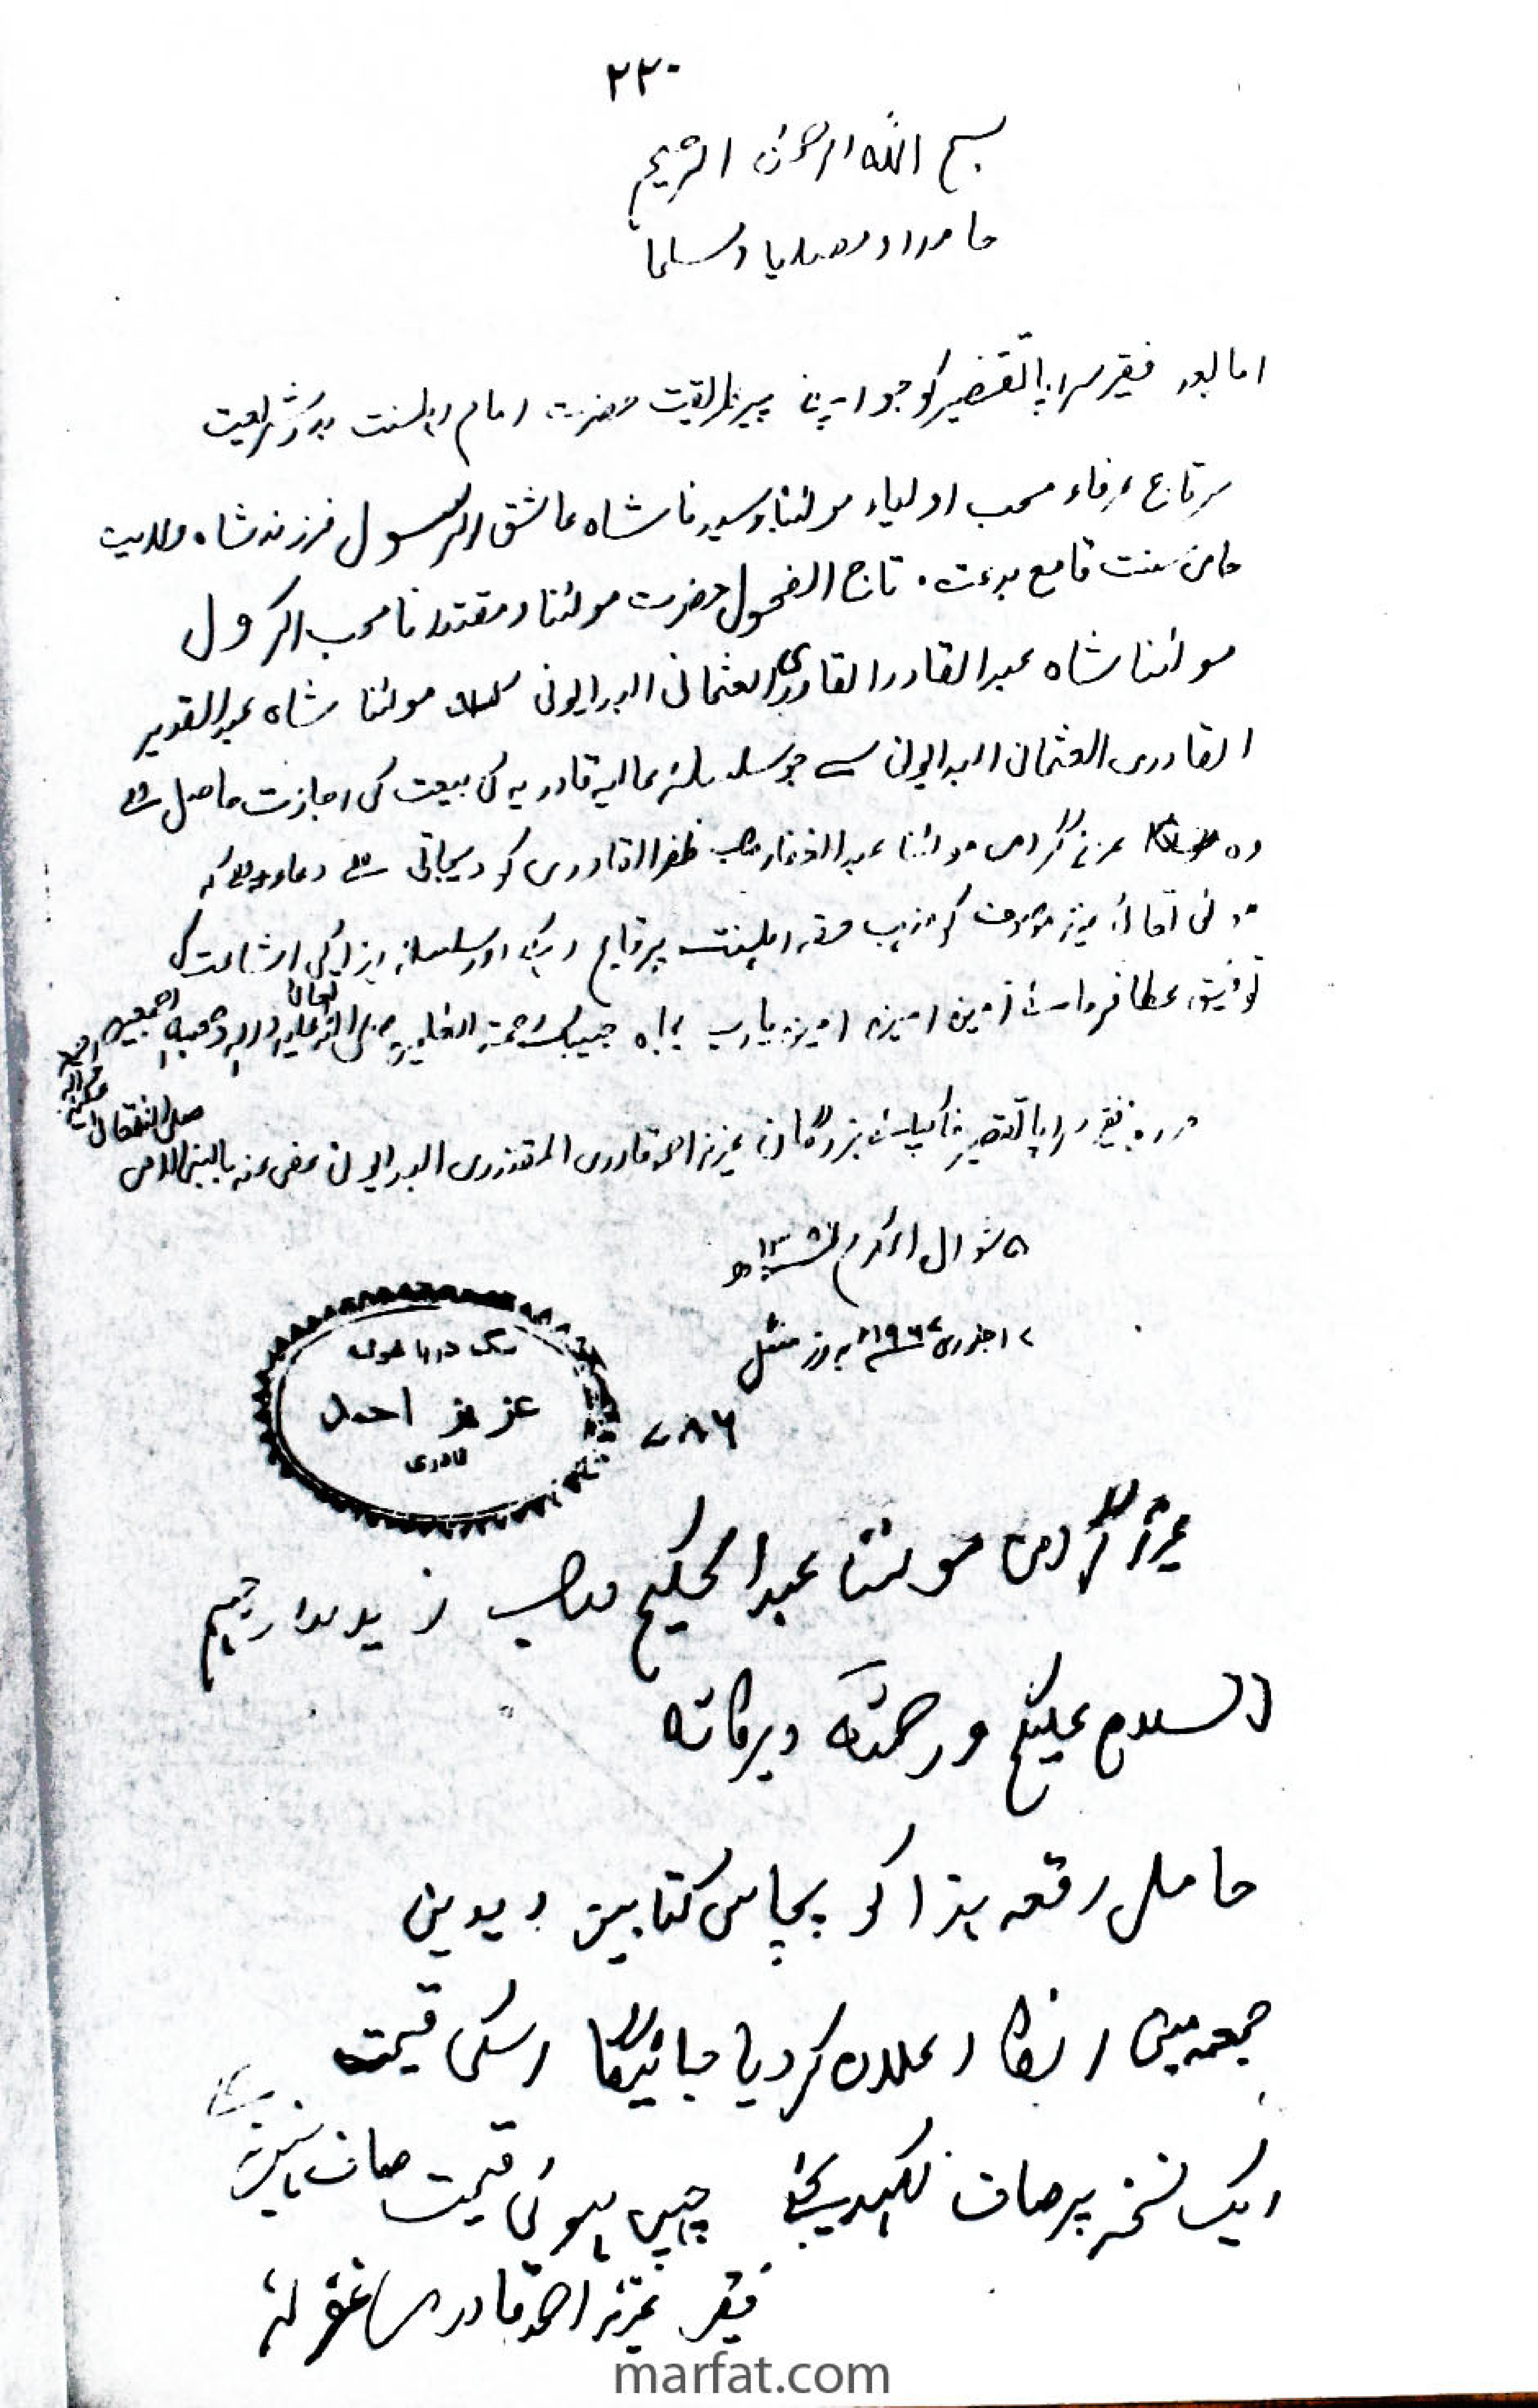 ٢٢٠
بسم اللہ الرحمٰن الرحیم
حامدا و مصلیا و مسلما
اما بعد فقیر سراپا تقصیر کو جو اپنے پیر طریقت حضرت امام اہلسنت بدر شریعت
سرتاج عرفاء محب اولیاء مولٰنا و سیدنا شاہ عاشق الرسول فرزند شاہ ولایت
حامی سنت قامع بدعت تاج الفحول حضرت مولٰنا و مقتدانا محب الرسول
مولٰنا شاہ عبدالقادر القادری العثمانی البدایونی مولٰنا شاہ عبدالقدیر
القادری العثمانی البدایونی سے جو سلسلہ عالیہ قادریہ کی بیعت کی اجازت حاصل ہے
وہ عزیز گرامی مولٰنا عبدالغفار صاحب ظفر القادری کو دیجاتی ہے دعا ہے کہ
مولٰی تعالٰی عزیز موصوف کو مذہب حقہ اہلسنت پر قایم رکھے اور سلسلہ ہذا کی اشاعت کی
توفیق عطا فرمائے آمین آمین آمین یارب بجاہ حبیبک رحمۃ العٰلمین صلی اللہ تعالٰی علیہ و الہ وصحبہ اجمعین
فقیر سراپا تقصیر خاکپائے بزرگان عزیز احمد قادری المقتدری البدایونی عفی عنہ بالنبی الامی
صلی اللہ تعالٰی علیہ
٥ شوال المکرم ١٣٨٦ھ
١٧ جنوری ١٩٦٧ء بروز منگل
سگ دربار غوثیہ
عزیز احمد
قادری
٧٨٦
عزیز گرامی مولٰنا عبدالحکیم صاحب زید مدارجہم
السلام علیکم ورحمتہ وبرکاتہ
حامل رقعہ ہذا کو پچاس کتابیں دیدیں
جمعہ میں انکا اعلان کردیا جائیگا اسکی قیمت
ایک نسخہ پر صاف لکھدیجئے چھپی ہوئی قیمت صاف نہیں ہے
فقیر عزیز احمد قادری غفرلہٗ
marfat.com